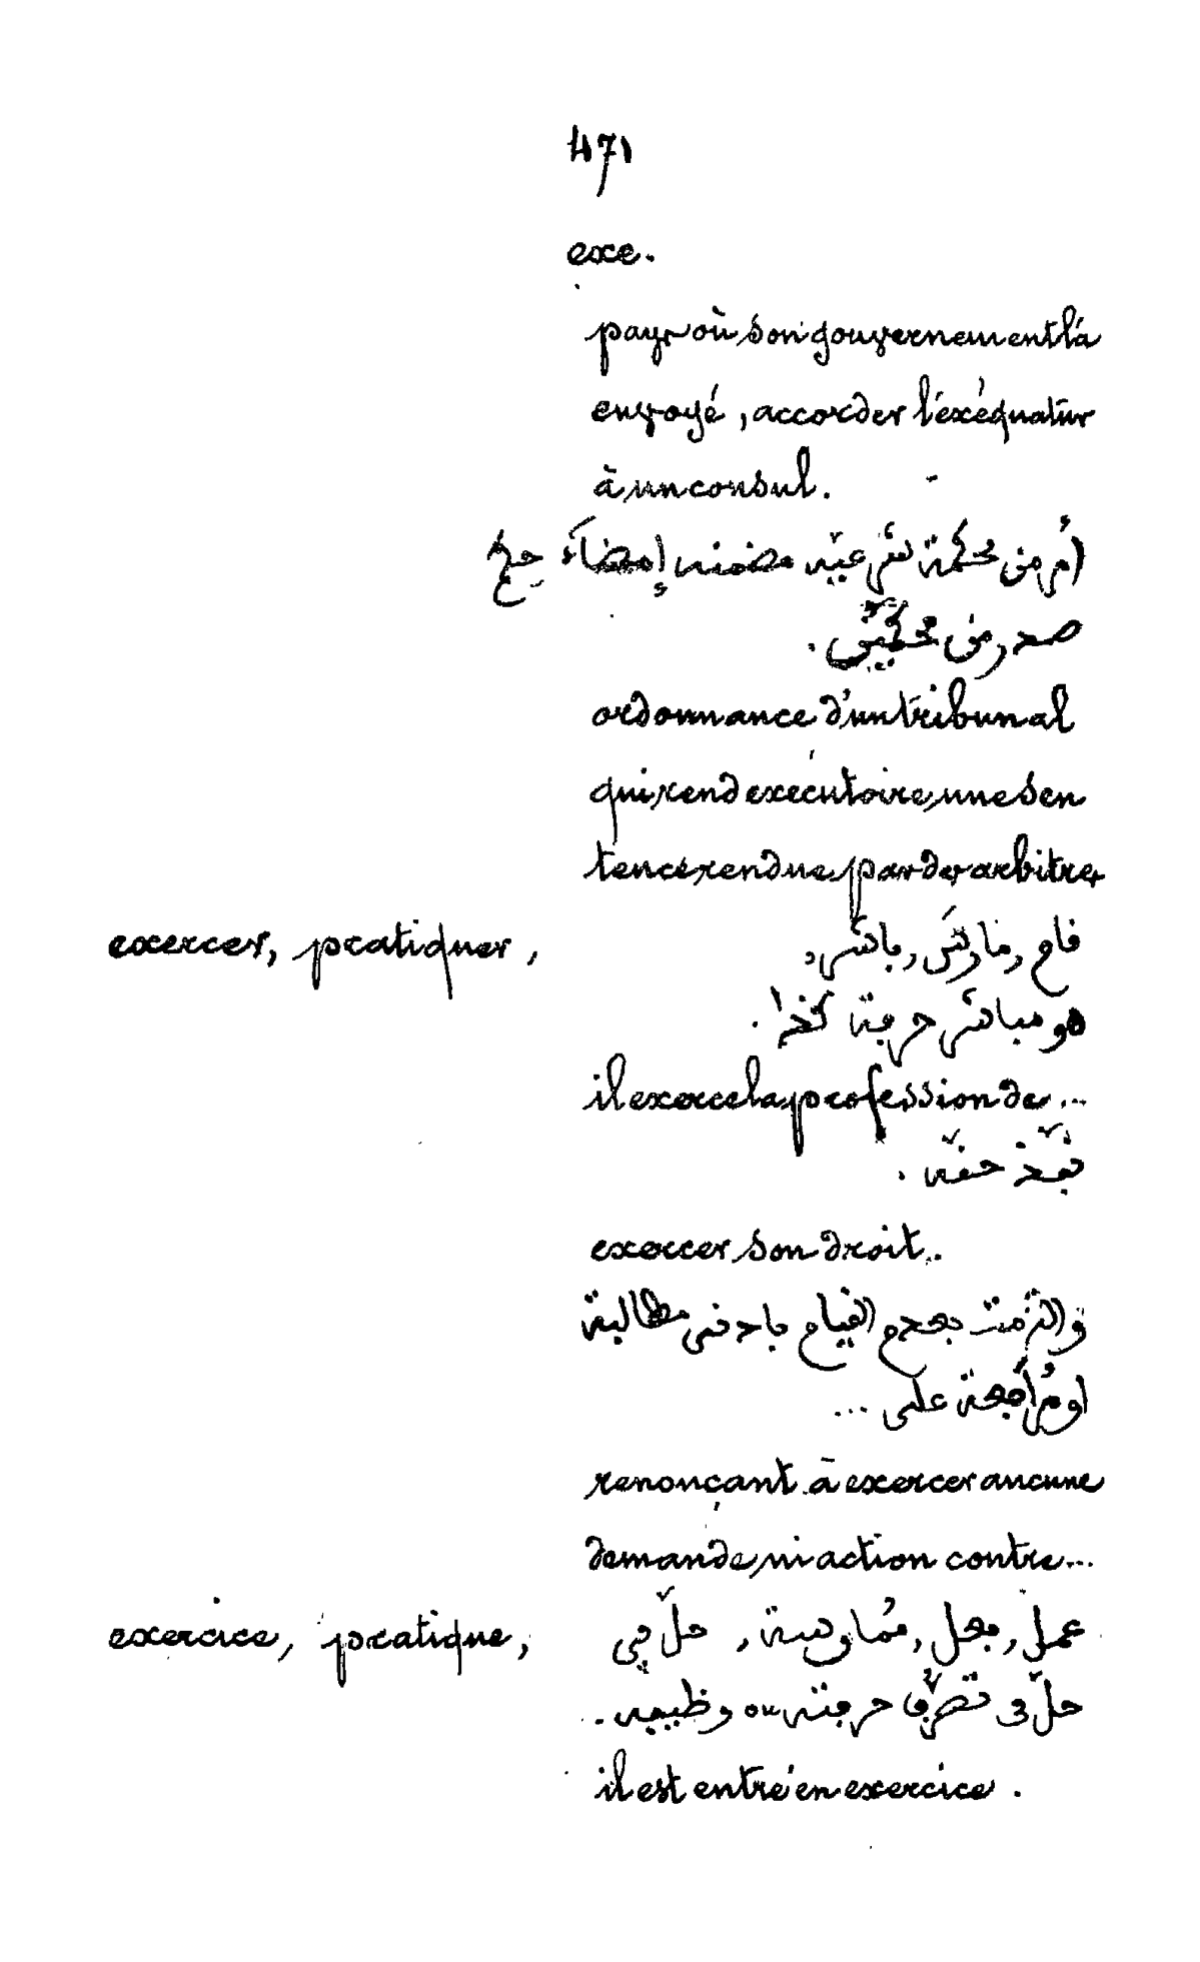 471
exe.
pays où son gouvernement l'a
envoyé, accorder l'éxéquatur
à un consul.
أمر من محكمة شرعيّه مضمنه إمضاَء حكم
صدر من محكّمين.
ordonnance d'un tribunal
qui rend exécutoire une sen
tence rendue par des arbitres
exercer, pratiquer, قام, مارَس, باشَر,
هو مباشر حرفة كذا.
il exerce la profession de...
نفّذ حقّه.
exercer son droit..
والتزمت بعدم القيام بادنى مطالبة
او مُراَجعة على ...
renonçant à exercer aucune
demande ni action contre...
exercice, pratique, عمل, فعل, مُمارسة, حلّ في
حلّ في تصرّف حرفته ou وظيفه.
il est entré en exercice.